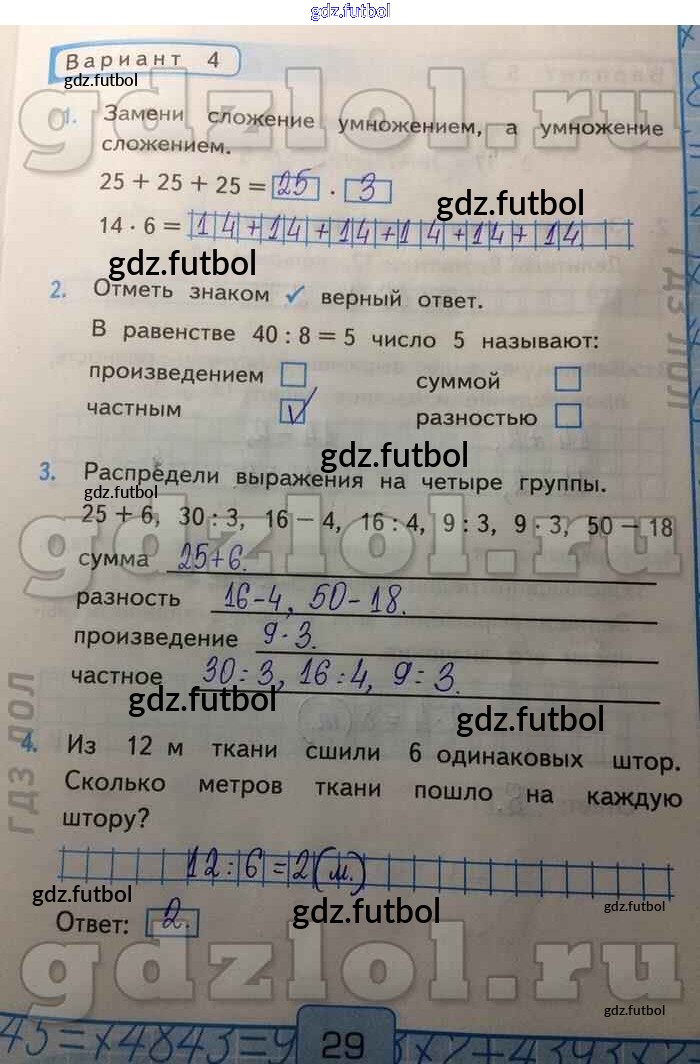 gdz.futbol
Вариант 4
gdz.futbol
1. Замени сложение умножением, а умножение
сложением.
25 + 25 + 25 = 25 · 3
gdz.futbol
14 · 6 = 14+14+14+14+14+14
gdz.futbol
2. Отметь знаком ✓ верный ответ.
В равенстве 40 : 8 = 5 число 5 называют:
произведением ☐ суммой ☐
частным ☑ разностью ☐
gdz.futbol
3. Распредели выражения на четыре группы.
gdz.futbol
25 + 6, 30 : 3, 16 − 4, 16 : 4, 9 : 3, 9 · 3, 50 − 18
gdzlol.ru
сумма 25+6.
разность 16-4, 50-18.
произведение 9·3.
частное 30:3, 16:4, 9:3.
gdz.futbol
gdz.futbol
ГДЗ ЛОЛ
ГДЗ ЛОЛ
4. Из 12 м ткани сшили 6 одинаковых штор.
Сколько метров ткани пошло на каждую
штору?
12:6=2(м.)
gdz.futbol
gdz.futbol
gdz.futbol
Ответ: 2.
gdzlol.ru
gdz.futbol
29
gdzlol.ru